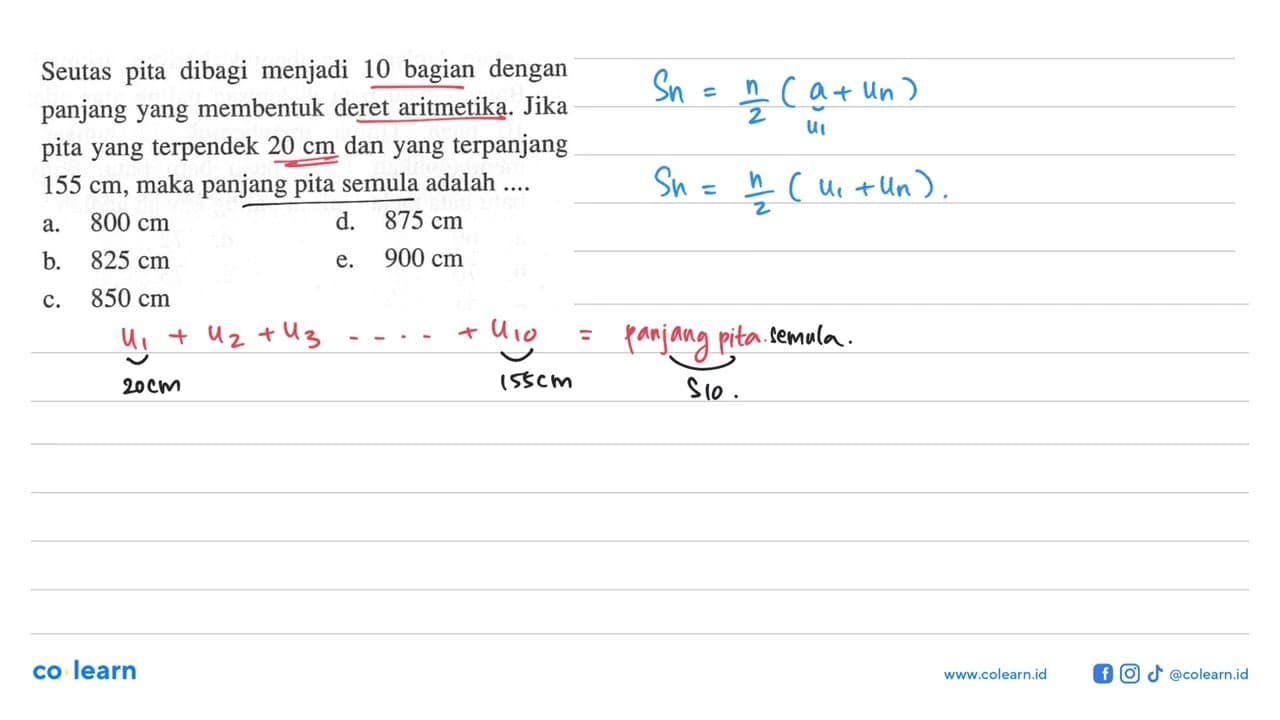 Seutas pita dibagi menjadi 10 bagian dengan
panjang yang membentuk deret aritmetika. Jika
pita yang terpendek 20 cm dan yang terpanjang
155 cm, maka panjang pita semula adalah ....
a. 800 cm d. 875 cm
b. 825 cm e. 900 cm
c. 850 cm
Sn = n/2 ( a + un )
u1
Sn = n/2 ( u1 + un ).
u1 + u2 + u3 ----- + u10 = panjang pita semula.
20cm 155cm S10.
co learn
www.colearn.id @colearn.id